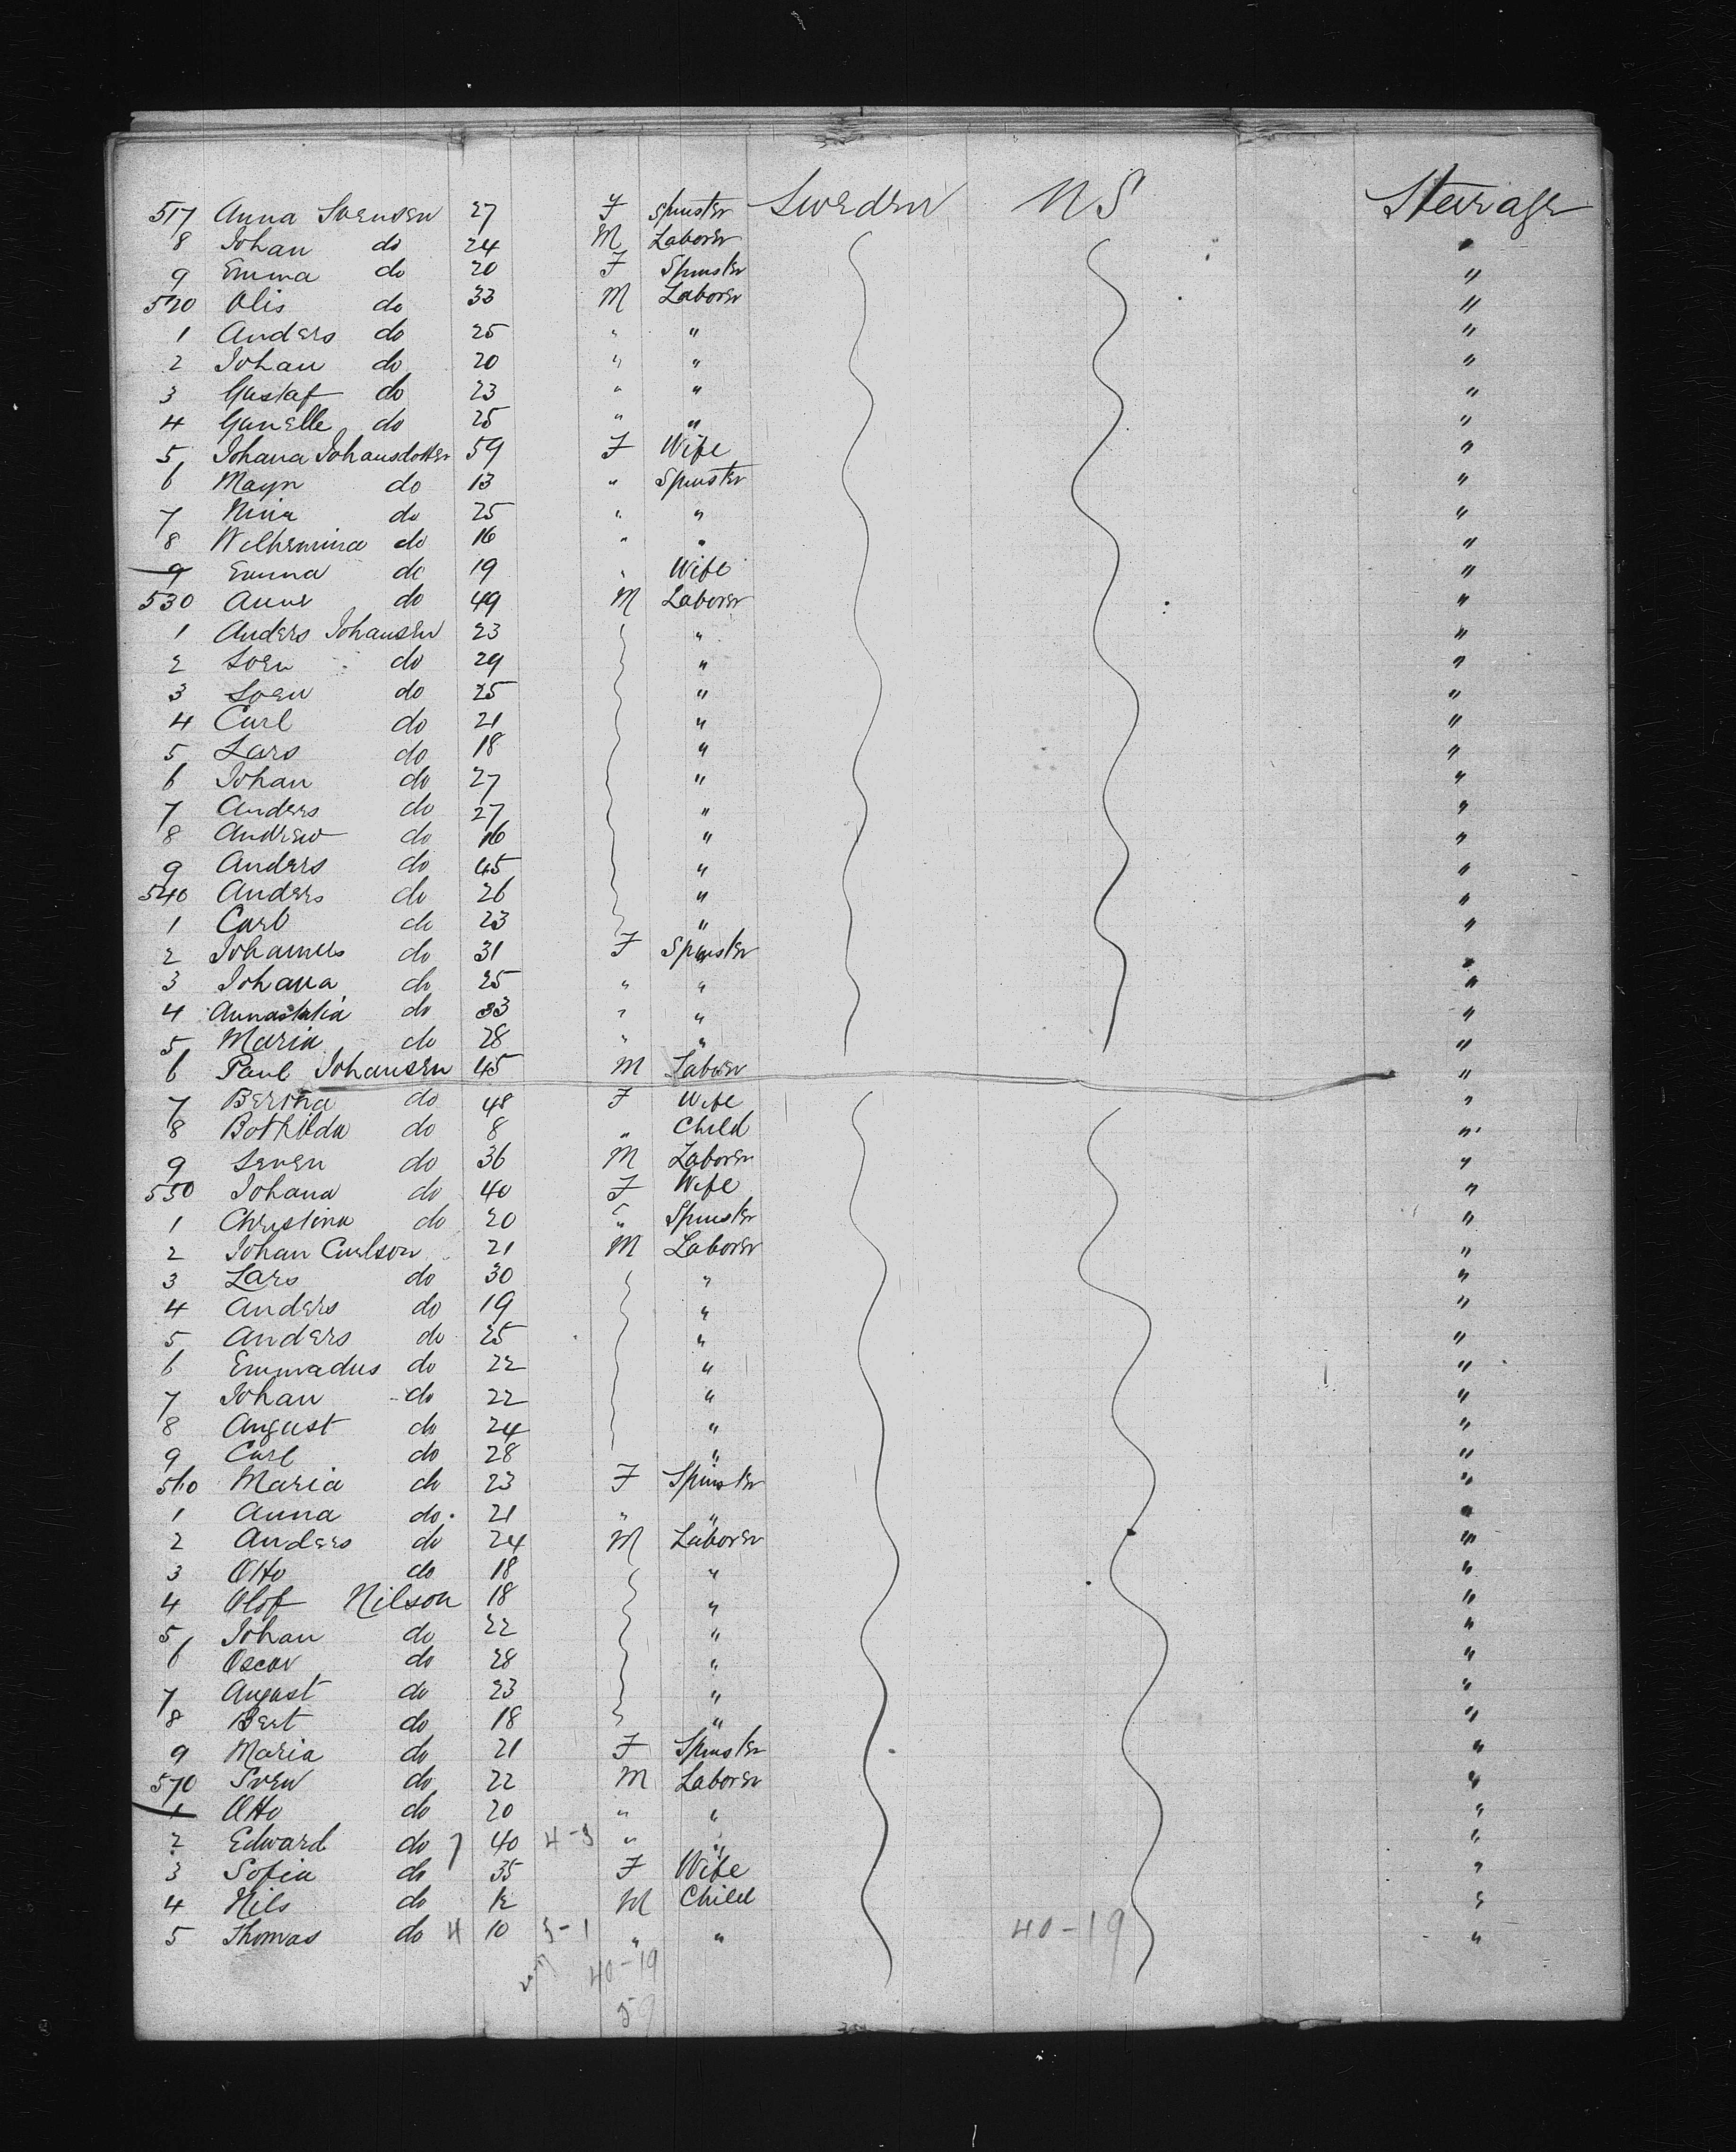 517 Anna Svensen 27 F Spinster Sweden US Steerage
8 Johan do 24 M Laborer "
9 Emma do 20 F Spinster "
520 Olis do 33 M Laborer "
1 Anders do 25 " " "
2 Johan do 20 " " "
3 Gustaf do 23 " " "
4 Gunelle do 25 " " "
5 Johana Johansdotter 59 F Wife "
6 do 13 " Spinster "
7 Nina do 25 " " "
8 Wilhemina do 16 " " "
9 Emma do 19 " Wife "
530 Anne do 49 M Laborer "
1 Anders Johansen 23 " "
2 Sven do 29 " "
3 Sven do 25 " "
4 Carl do 21 " "
5 Lars do 18 " "
6 Johan do 27 " "
7 Anders do 27 " "
8 Andrew do 16 " "
9 Anders do 45 " "
540 Anders do 26 " "
1 Carl do 23 " "
2 Johannes do 31 F Spinster "
3 Johana do 25 " " "
4 do 33 " " "
5 Maria do 28 " " "
6 Paul Johansen 45 M Laborer "
7 Bertha do 48 F Wife "
8 Bothilda do 8 " Child "
9 Seven do 36 M Laborer "
550 Johana do 40 F Wife "
1 Christina do 20 " Spinster "
2 Johan Carlson 21 M Laborer "
3 Lars do 30 " "
4 Anders do 19 " "
5 Anders do 25 " "
6 Emmadus do 22 " "
7 Johan do 22 " "
8 August do 24 " "
9 Carl do 28 " "
560 Maria do 23 F Spinster "
1 Anna do 21 " " "
2 Anders do 24 M Laborer "
3 Otto do 18 " "
4 Olof Nilson 18 " "
5 Johan do 22 " "
6 Oscar do 28 " "
7 August do 23 " "
8 Bert do 18 " "
9 Maria do 21 F Spinster "
570 Sven do 22 M Laborer "
1 Otto do 20 " " "
2 Edward do 7 40 4-3 " " "
3 Sofia do 35 F Wife "
4 Nils do 12 M Child "
5 Thomas do 4 10 3-1 " " 40-19 "
40-19
59